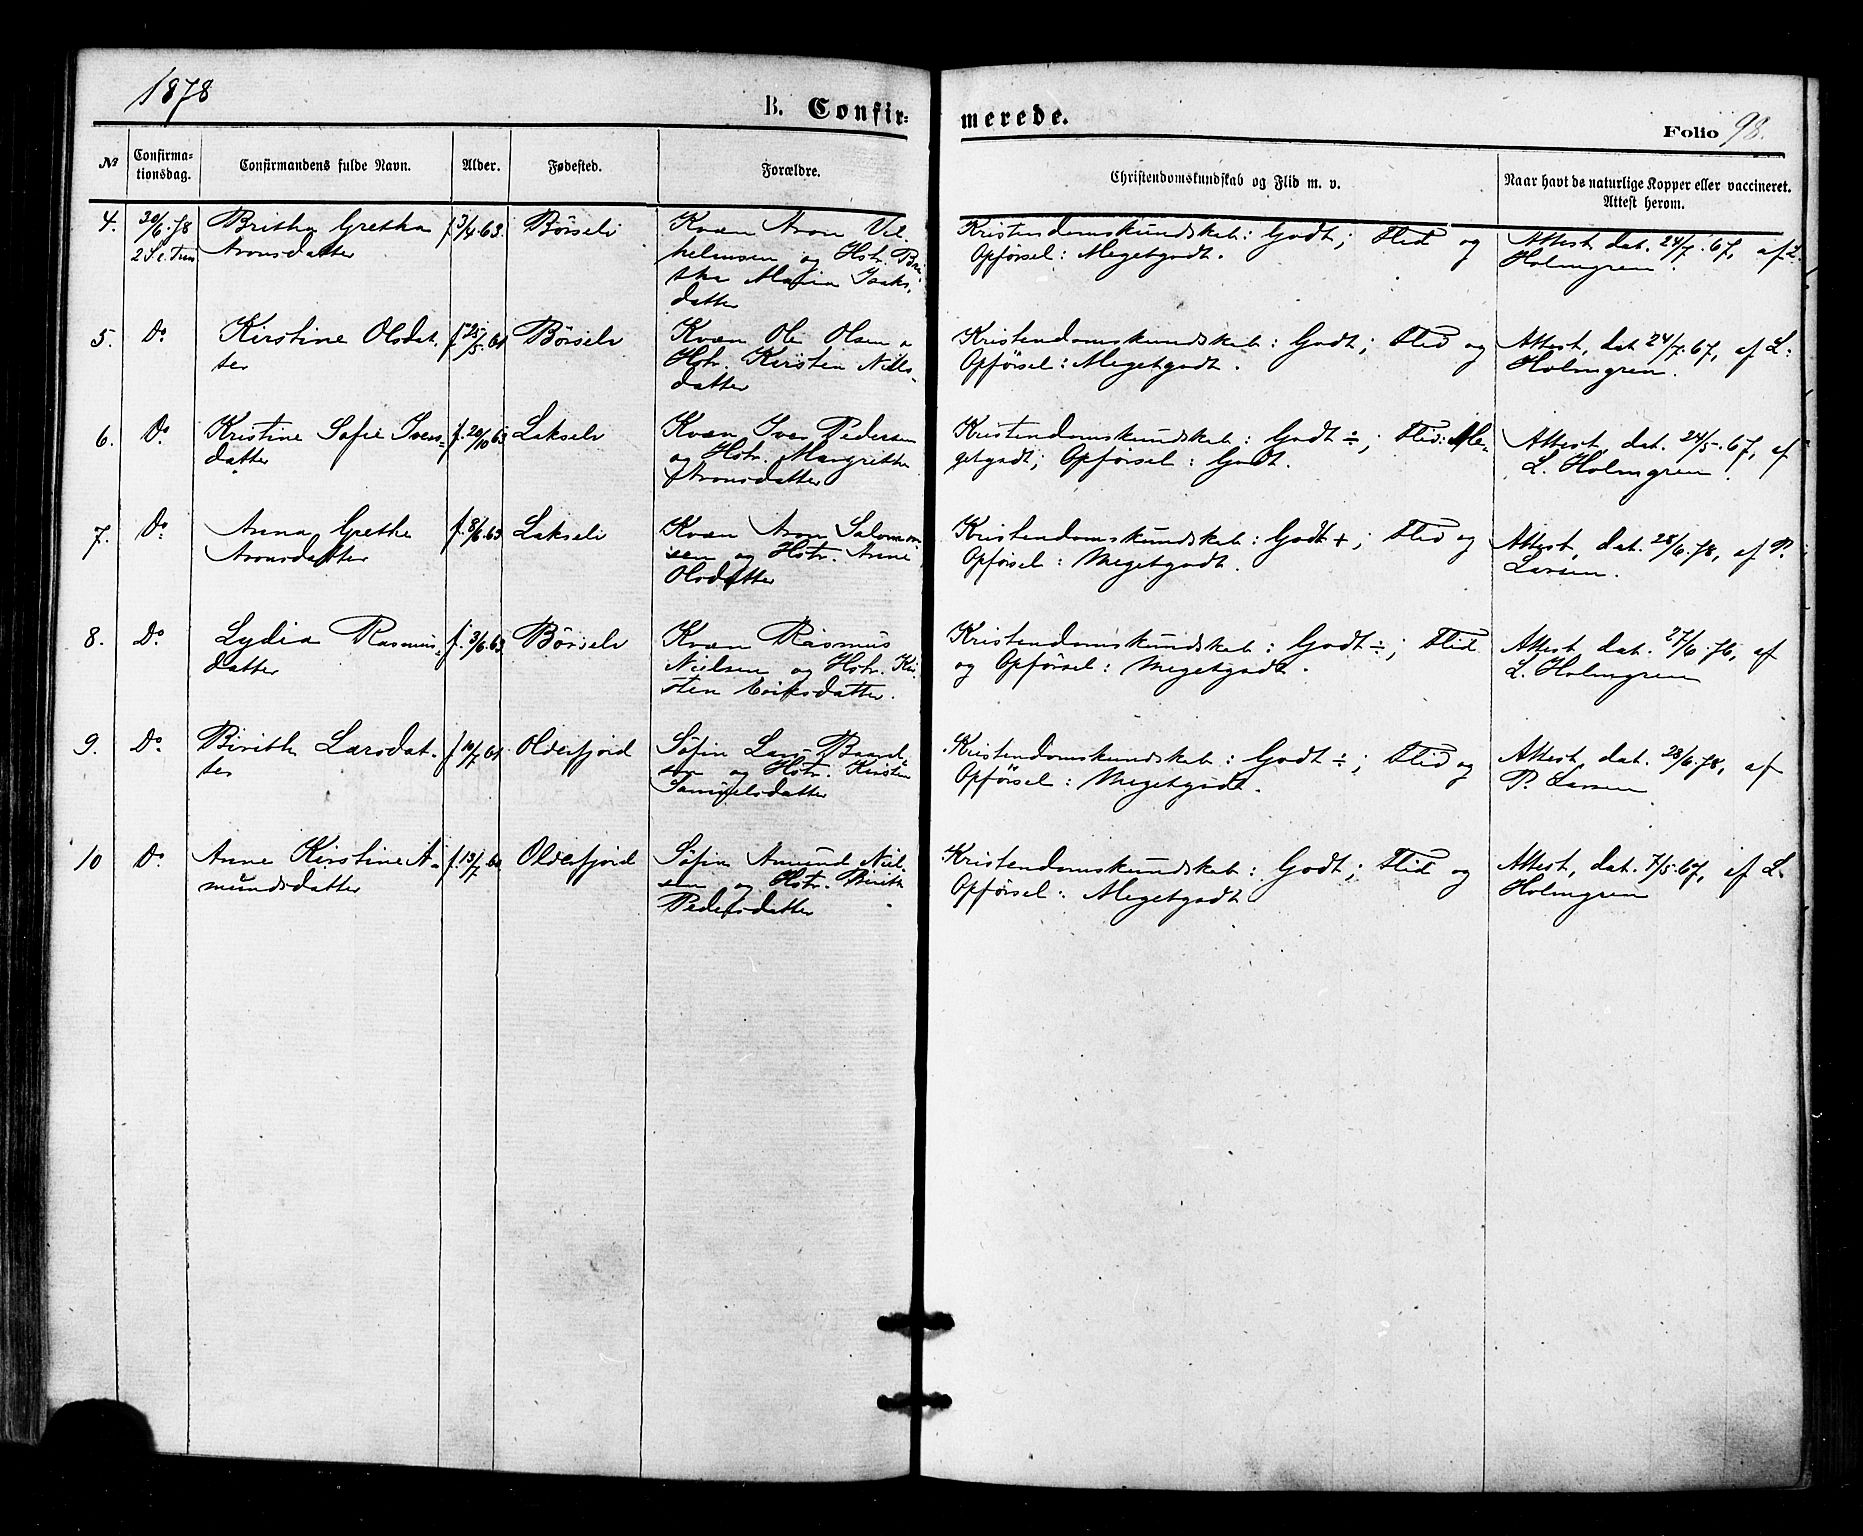 1878
B. Confir=
merede.
Folio 98.
№
Confirma-
tionsdag.
Confirmandens fulde Navn.
Alder.
Fødested.
Forældre.
Christendomskundskab og Flid m. v.
Naar havt de naturlige Kopper eller vaccineret.
Attest herom.
4. 30/6.78 Britha Gretha f. 3/4.63. Børselv Kvæn Aron Vil-
2 S. e. Trin Aronsdatter helmsen og Hstr. Bri-
tha Maria Isaks-
datter
Kristendomskundskab: Godt; Flid og
Opførsel: Megetgodt.
Attest dat. 24/7.67, af L.
Holmgren.
5. Do. Kirstine Olsdat- f. 25/5.64 Børselv Kvæn Ole Olsen o
ter Hstr. Kirsten Niels-
datter
Kristendomskundskab: Godt; Flid og
Opførsel: Megetgodt.
Attest, dat 24/7.67, af L.
Holmgren.
6. Do. Kristine Sofie Ivers- f. 20/10 63 Lakselv Kvæn Iver Pedersen
datter og Hstr. Margrethe
Aronsdatter
Kristendomskundskab: Godt ÷; Flid: Me-
getgodt; Opførsel: Godt.
Attest, dat. 24/5.67, af
L. Holmgren.
7. Do. Anna Grethe f. 8/6 63 Lakselv Kvæn Aron Salomon-
Aronsdatter sen og Hstr. Anne
Olsdatter
Kristendomskundskab: Godt +; Flid og
Opførsel: Megetgodt.
Attest, dat. 28/6.78, af P.
Larsen.
8. Do. Lydia Rasmus- f. 3/6.63 Børselv Kvæn Rasmus
datter Nielsen og Hstr. Kir-
sten Eriksdatter.
Kristendomskundskab: Godt ÷; Flid
og Opførsel: Megetgodt.
Attest dat. 27/6.76, af
L. Holmgren
9. Do. Birith Larsdat- f 10/7 64 Olderfjord Søfin Lars
ter og Hstr. Kirsten
Samuelsdatter
Kristendomskundskab: Godt ÷; Flid og
Opførsel: Megetgodt.
Attest, dat. 28/6.78, af
P. Larsen
10 Do. Anne Kirstine A- f. 13/7 Olderfjord Søfin Amund Niel-
mundsdatter sen og Hstr. Birith
Pedersdatter
Kristendomskundskab: Godt; Flid og
Opførsel: Megetgodt
Attest, dat. 7/5.67, af L.
Holmgren